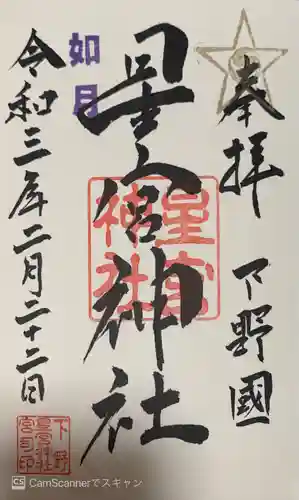 奉拝
下野國
星宮神社
星宮神社
如月
令和三年二月二十二日
下野
星宮神社
宮司印
CS CamScannerでスキャン